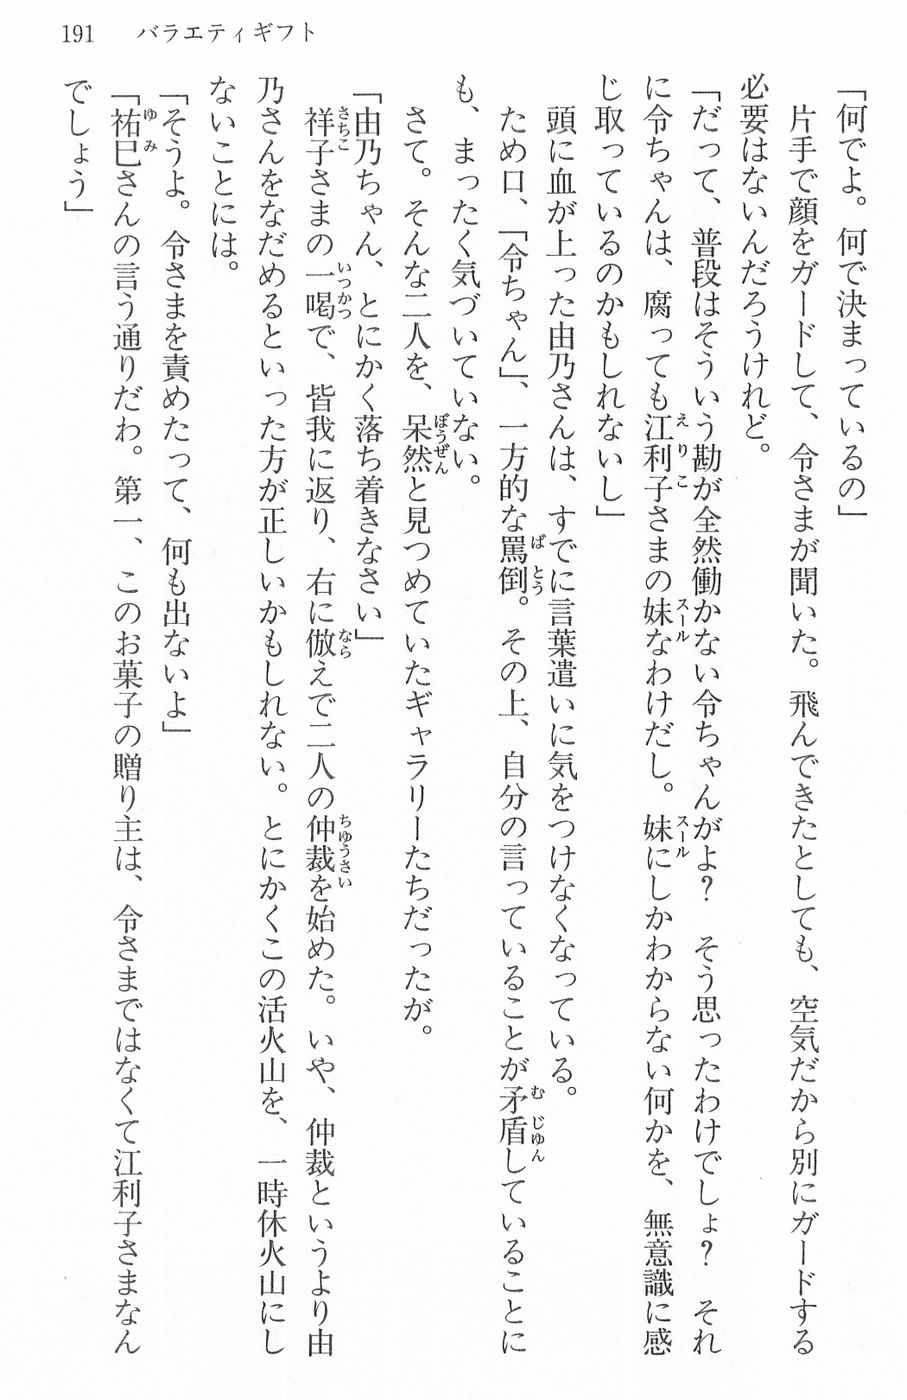 191　バラエティギフト
「何でよ。何で決まっているの」
　片手で顔をガードして、令さまが聞いた。飛んできたとしても、空気だから別にガードする
必要はないんだろうけれど。
「だって、普段はそういう勘が全然働かない令ちゃんがよ？　そう思ったわけでしょ？　それ
に令ちゃんは、腐っても江利子さまの妹なわけだし。妹にしかわからない何かを、無意識に感
じ取っているのかもしれないし」
　頭に血が上った由乃さんは、すでに言葉遣いに気をつけなくなっている。
　ため口、「令ちゃん」、一方的な罵倒。その上、自分の言っていることが矛盾していることに
も、まったく気づいていない。
　さて。そんな二人を、呆然と見つめていたギャラリーたちだったが。
「由乃ちゃん、とにかく落ち着きなさい」
　祥子さまの一喝で、皆我に返り、右に倣えで二人の仲裁を始めた。いや、仲裁というより由
乃さんをなだめるといった方が正しいかもしれない。とにかくこの活火山を、一時休火山にし
ないことには。
「そうよ。令さまを責めたって、何も出ないよ」
「祐巳さんの言う通りだわ。第一、このお菓子の贈り主は、令さまではなくて江利子さまなん
でしょう」